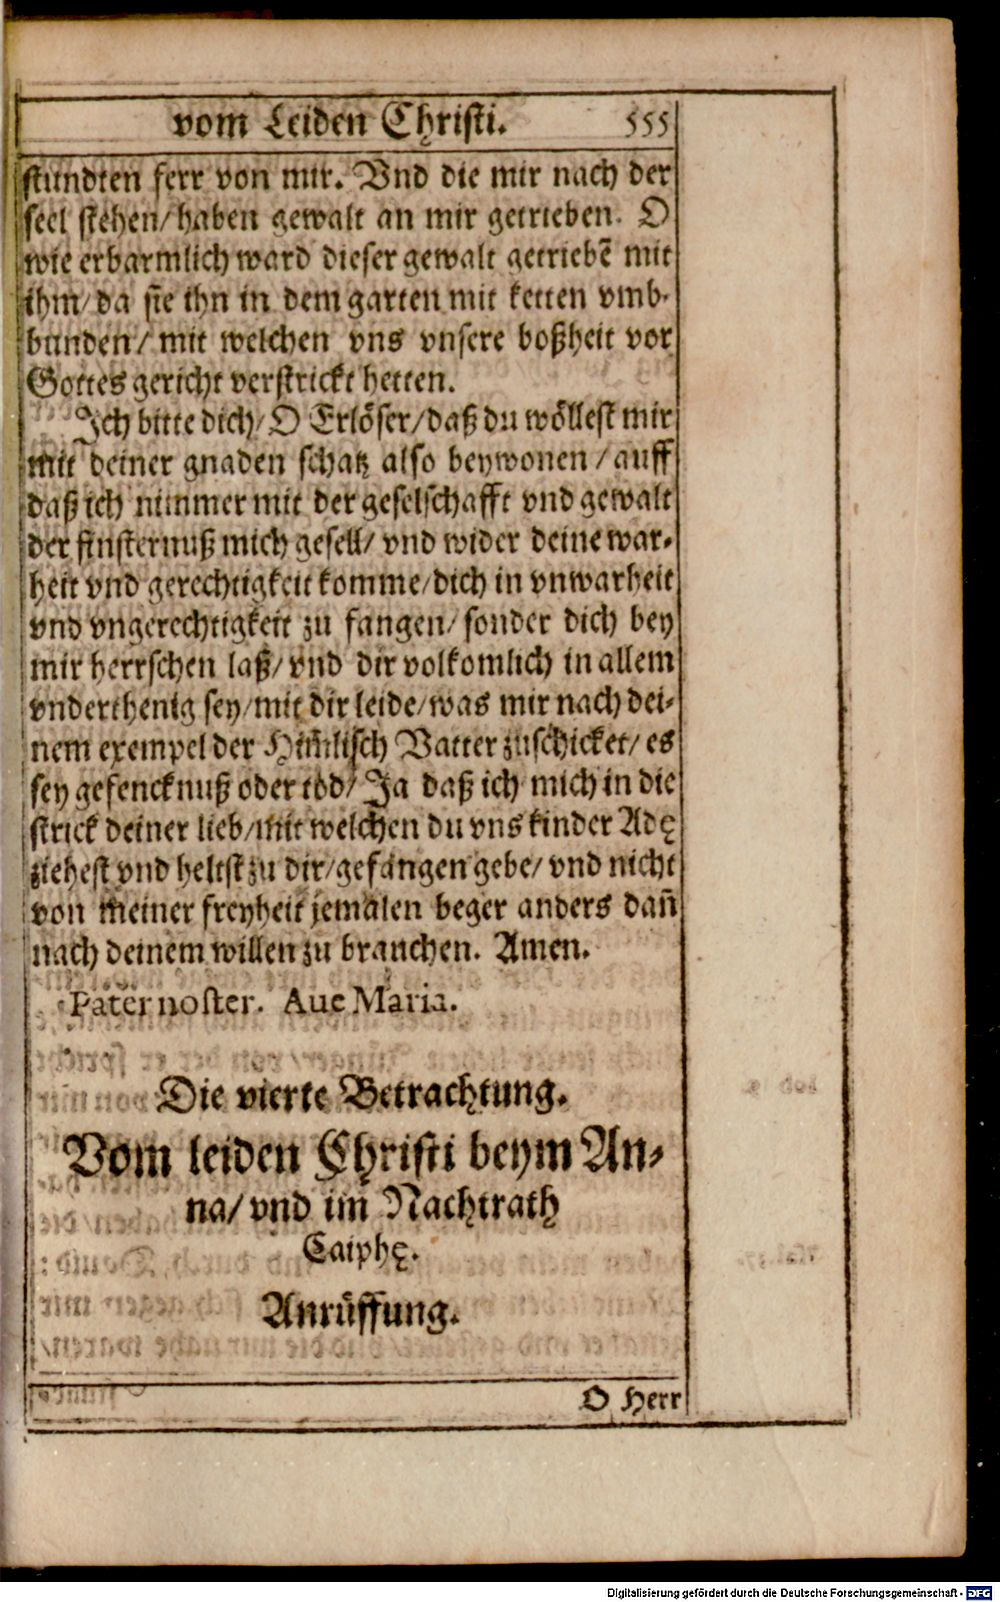 vom Leiden Christi. 555
stundten ferr von mir. Vnd die mir nach der
seel stehen/haben gewalt an mir getrieben. O
wie erbarmlich ward dieser gewalt getriebẽ mit
ihm/da sie ihn in dem garten mit ketten vmb-
bunden/ mit welchen vns vnsere boßheit vor
Gottes gericht verstrickt hetten.
Ich bitte dich/O Erlöser/daß du wöllest mir
mit deiner gnaden schatz also beywonen/auff
daß ich nimmer mit der geselschafft vnd gewalt
der finsternuß mich gesell/ vnd wider deine war-
heit vnd gerechtigkeit komme/dich in vnwarheit
vnd vngerechtigkeit zu fangen/sonder dich bey
mir herrschen laß/vnd dir volkomlich in allem
vnderthenig sey/mit dir leide/was mir nach dei-
nem exempel der Him̃lisch Vatter zuschicket/es
sey gefencknuß oder tod/Ja daß ich mich in die
strick deiner lieb/mit welchen du vns kinder Adę
ziehest vnd heltst zu dir/gefangen gebe/vnd nicht
von meiner freyheit jemalen beger anders dañ
nach deinem willen zu brauchen. Amen.
Pater noster. Aue Maria.
Die vierte Betrachtung.
Vom leiden Christi beym An-
na/ vnd im Nachtrath
Caiphę.
Anrüffung.
O Herr
Digitalisierung gefördert durch die Deutsche Forschungsgemeinschaft - DFG